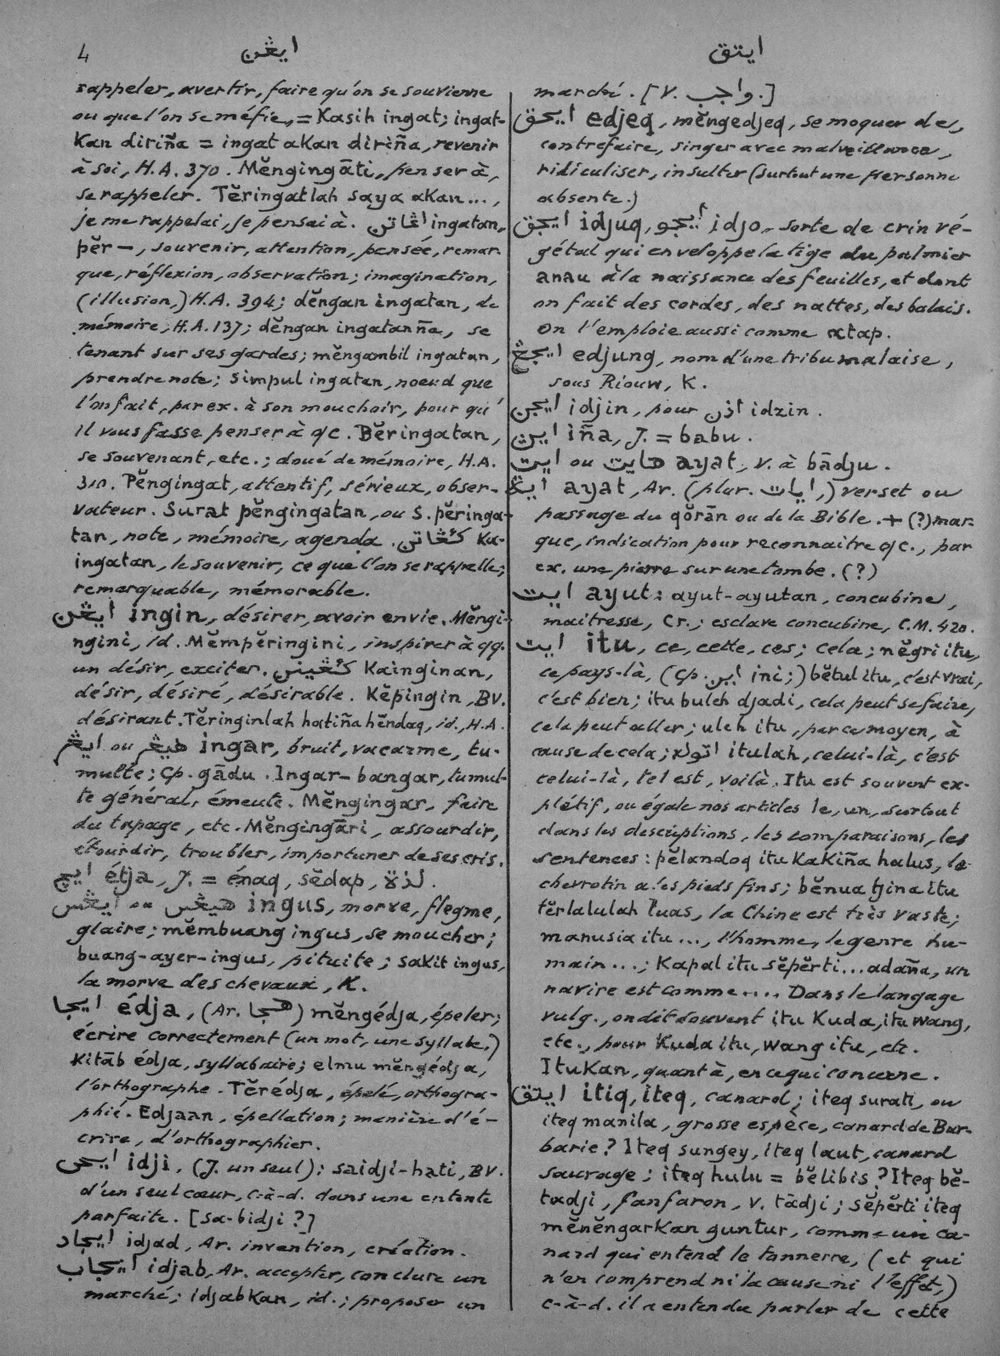 4 ايڠن ايتق
rappeler, avertir, faire qu'on se souvienne
ou que l'on se méfie, = Kasih ingat; ingat-
Kan diriña = ingat akan diriña, revenir
à soi, H.A. 370. Mĕngingāti, penser à,
se rappeler. Tĕringatlah saya akan...,
je me rappelai, je pensai à. اڠاتن ingatan,
pĕr—, souvenir, attention, pensée, remar-
que, réflexion, observation; imagination,
(illusion,) H.A. 394; dĕngan ingatan, de
mémoire, H.A. 137; dĕngan ingatanña, se
tenant sur ses gardes; mĕngambil ingatan,
prendre note; Simpul ingatan, noeud que
l'on fait, par ex. à son mouchoir, pour qu'
il vous fasse penser à qc. Bĕringatan,
se souvenant, etc.; doué de mémoire, H.A.
310. Pĕngingat, attentif, sérieux, obser-
vateur. Surat pĕngingatan, ou S. pĕringa-
tan, note, mémoire, agenda. كڠاتن Ka-
ingatan, le souvenir, ce que l'on se rappelle;
remarquable, mémorable.
ايڠن ingin, désirer, avoir envie. Mĕngi-
ngini, id. Mĕmpĕringini, inspirer à qq.
un désir, exciter. كڠينن Kainginan,
désir, désiré, désirable. Kĕpingin, BV.
désirant. Tĕringinlah hatiña hĕndaq, id., H.A.
ايڠر ou هيڠر ingar, bruit, vacarme, tu-
multe; Cp. gādu. Ingar-bangar, tumul-
te général, émeute. Mĕngingar, faire
du tapage, etc. Mĕngingāri, assourdir,
étourdir, troubler, importuner de ses cris.
ايچ étja, J. = énaq, sĕdap, لذة.
ايڠس ou هيڠس ingus, morve, flegme,
glaire; mĕmbuang ingus, se moucher;
buang-ayer-ingus, pituite; sakit ingus,
la morve des chevaux, K.
ايجا édja, (Ar. هجا) mĕngédja, épeler;
écrire correctement (un mot, une syllabe.)
Kitāb édja, syllabaire; elmu mĕngédja,
l'orthographe. Tĕrédja, épelé, orthogra-
phié. Edjaan, épellation; manière d'é-
crire, d'orthographier.
ايجي idji, (J. un seul): saidji-hati, BV.
d'un seul cœur, c-à-d. dans une entente
parfaite. [sa-bidji?]
ايجاد idjad, Ar. invention, création.
ايجاب idjab, Ar. accepter, conclure un
marché; idjabKan, id.; proposer un
marché. [V. واجب.]
ايجق edjeq, mĕngedjeq, se moquer de,
contrefaire, singer avec malveillance,
ridiculiser, insulter (surtout une personne
absente.)
ايجق idjuq, ايجو idjo, sorte de crin vé-
gétal qui enveloppe la tige du palmier
anau à la naissance des feuilles, et dont
on fait des cordes, des nattes, des balais.
On l'emploie aussi comme atap.
ايجڠ edjung, nom d'une tribu malaise,
sous Riouw, K.
ايجن idjin, pour اذن idzin.
اين iña, J. = babu.
ايت ou هايت ayat, v. à bādju.
اية ayat, Ar. (plur. ايات,) verset ou
passage du qŏrān ou de la Bible. + (?) mar-
que, indication pour reconnaitre qc., par
ex. une pierre sur une tombe. (?)
ايت ayut: ayut-ayutan, concubine,
maitresse, Cr.; esclave concubine, C.M. 420.
ايت itu, ce, cette, ces; cela; nĕgri itu,
ce pays-là, (Cp. اين ini;) bĕtul itu, c'est vrai,
c'est bien; itu buleh djadi, cela peut se faire,
cela peut aller; uleh itu, par ce moyen, à
cause de cela; اتوله itulah, celui-là, c'est
celui-là, tel est, voilà. Itu est souvent ex-
plétif, ou égale nos articles le, un, surtout
dans les descriptions, les comparaisons, les
sentences: pĕlandoq itu Kakiña halus, le
chevrotin a les pieds fins; bĕnua tjina itu
tĕrlalulah luas, la Chine est très vaste;
manusia itu..., l'homme, le genre hu-
main...; Kapal itu sĕpĕrti... adaña, un
navire est comme.... Dans le langage
vulg., on dit souvent itu Kuda, itu wang,
etc., pour Kuda itu, wang itu, etc.
ItuKan, quant à, en ce qui concerne.
ايتق itiq, iteq, canard; iteq surati, ou
iteq manila, grosse espèce, canard de Bar-
barie? Iteq sungey, iteq laut, canard
sauvage; iteq hulu = bĕlibis? Iteq bĕ-
tadji, fanfaron, v. tādji; sĕpĕrti iteq
mĕnĕngarKan guntur, comme un ca-
nard qui entend le tonnerre, (et qui
n'en comprend ni la cause ni l'effet,)
c-à-d. il a entendu parler de cette